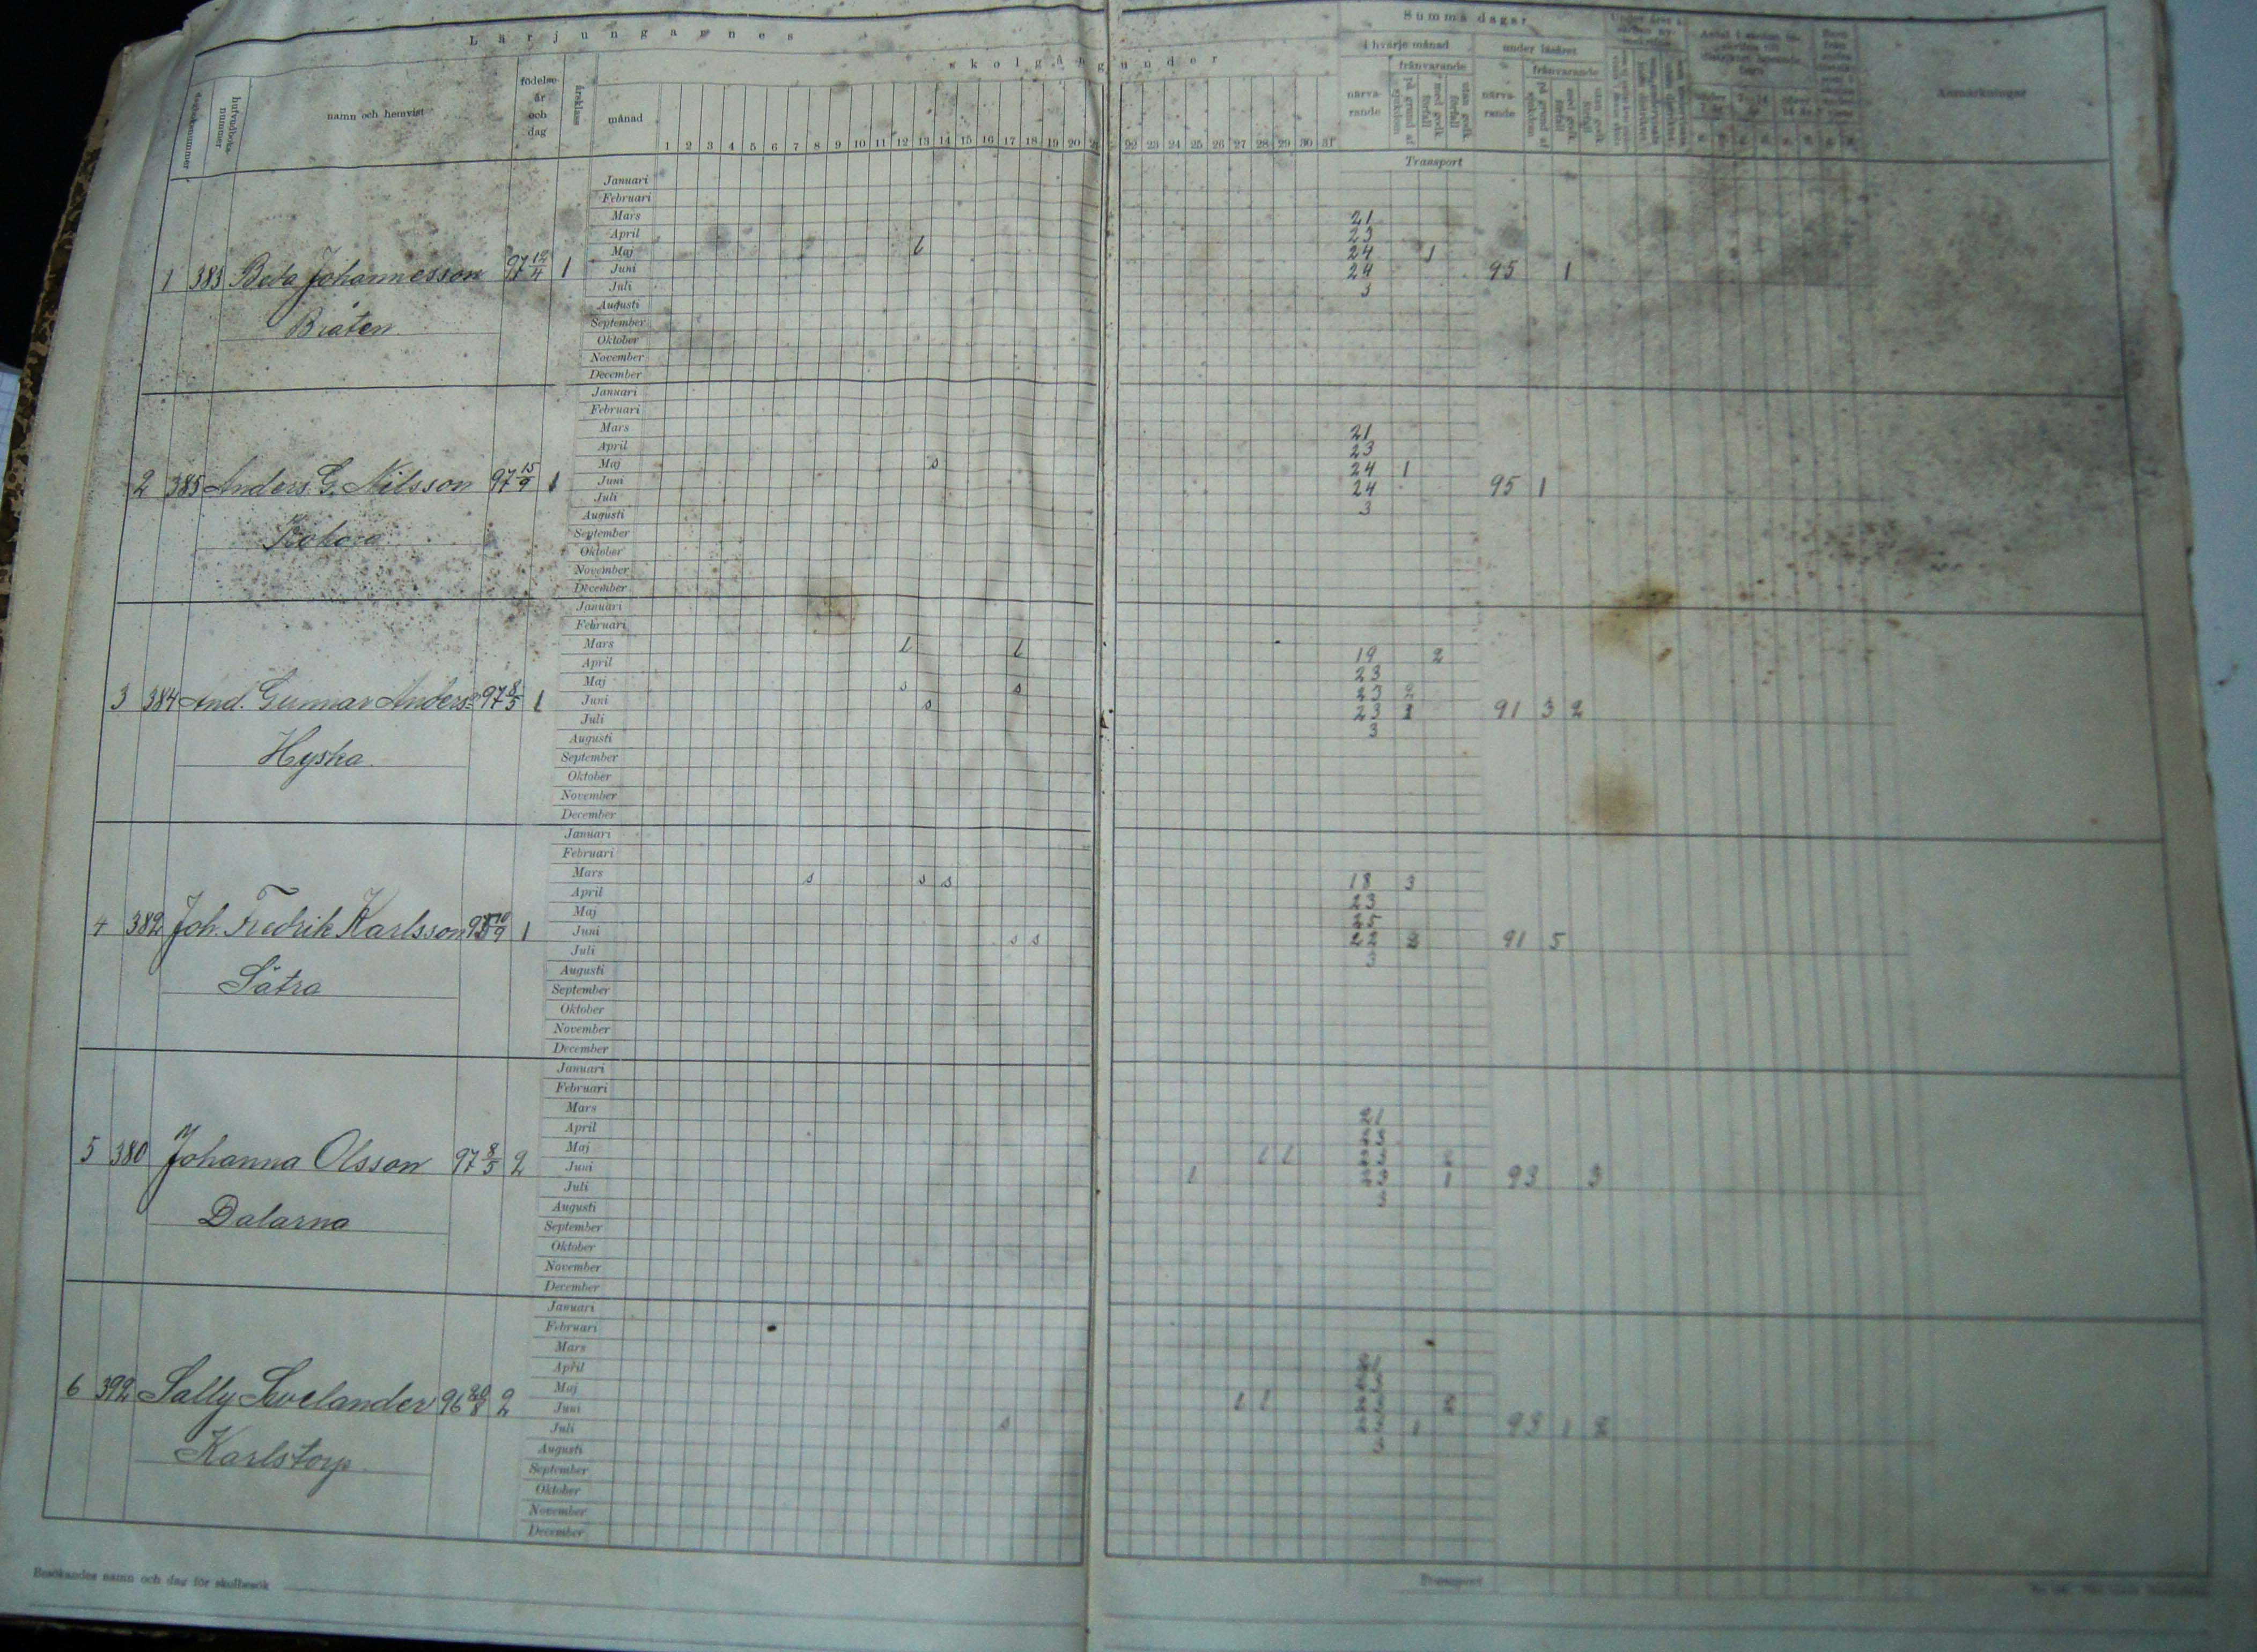 Lärjungarnes skolgång under
Summa dagar
i hvarje månad
under läsåret
frånvarande
frånvarande
dagboksnummer
hufvudboksnummer
namn och hemvist
födelseår och dag
årsklass
månad
1 2 3 4 5 6 7 8 9 10 11 12 13 14 15 16 17 18 19 20 21 22 23 24 25 26 27 28 29 30 31
närvarande
på grund af sjukdom
med godk. förfall
utan godk. förfall
närvarande
på grund af sjukdom
med godk. förfall
utan godk. förfall
Anmärkningar
Transport
Januari
Februari
Mars 21
April 23
Maj l 24 1
1 383 Beda Johannesson 97 12/4 1 Juni 24 95 1
Juli 3
Augusti
Bråten September
Oktober
November
December
Januari
Februari
Mars 21
April 23
Maj s 24 1
2 385 Anders G. Nilsson 97 15/9 1 Juni 24 95 1
Juli 3
Augusti
September
Oktober
November
December
Januari
Februari
Mars l l 19 2
April 23
Maj s s 23 2
3 384 And. Gunnar Anderss 97 8/5 1 Juni s 23 1 91 3 2
Juli 3
Augusti
Hyska September
Oktober
November
December
Januari
Februari
Mars s s s 18 3
April 23
Maj 25
4 382 Joh. Fredrik Karlsson 1 Juni s s 22 91 5
Juli 3
Augusti
Sätra September
Oktober
November
December
Januari
Februari
Mars 21
April
Maj l l
5 380 Johanna Olsson 97 8/5 2 Juni l 1 93 3
Juli 3
Augusti
Dalarna September
Oktober
November
December
Januari
Februari
Mars
April
Maj l l
6 392 Sally Svelander 96 20/8 2 Juni s 93 1 2
Juli
Augusti
Karlstorp September
Oktober
November
December
Besökandes namn och dag för skolbesök
Transport